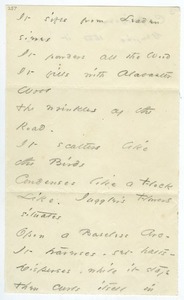 It sifts from Leaden
sieves
It powders all the Wood
It fills with Alabaster
Wool
the wrinkles of the
Road.
It scatters like
the Birds
Condenses like a Flock
Like Juggler's Figures
situates
Upon a baseless Arc –
It traverses yet halts –
Disperses, while it stays
then curls itself in